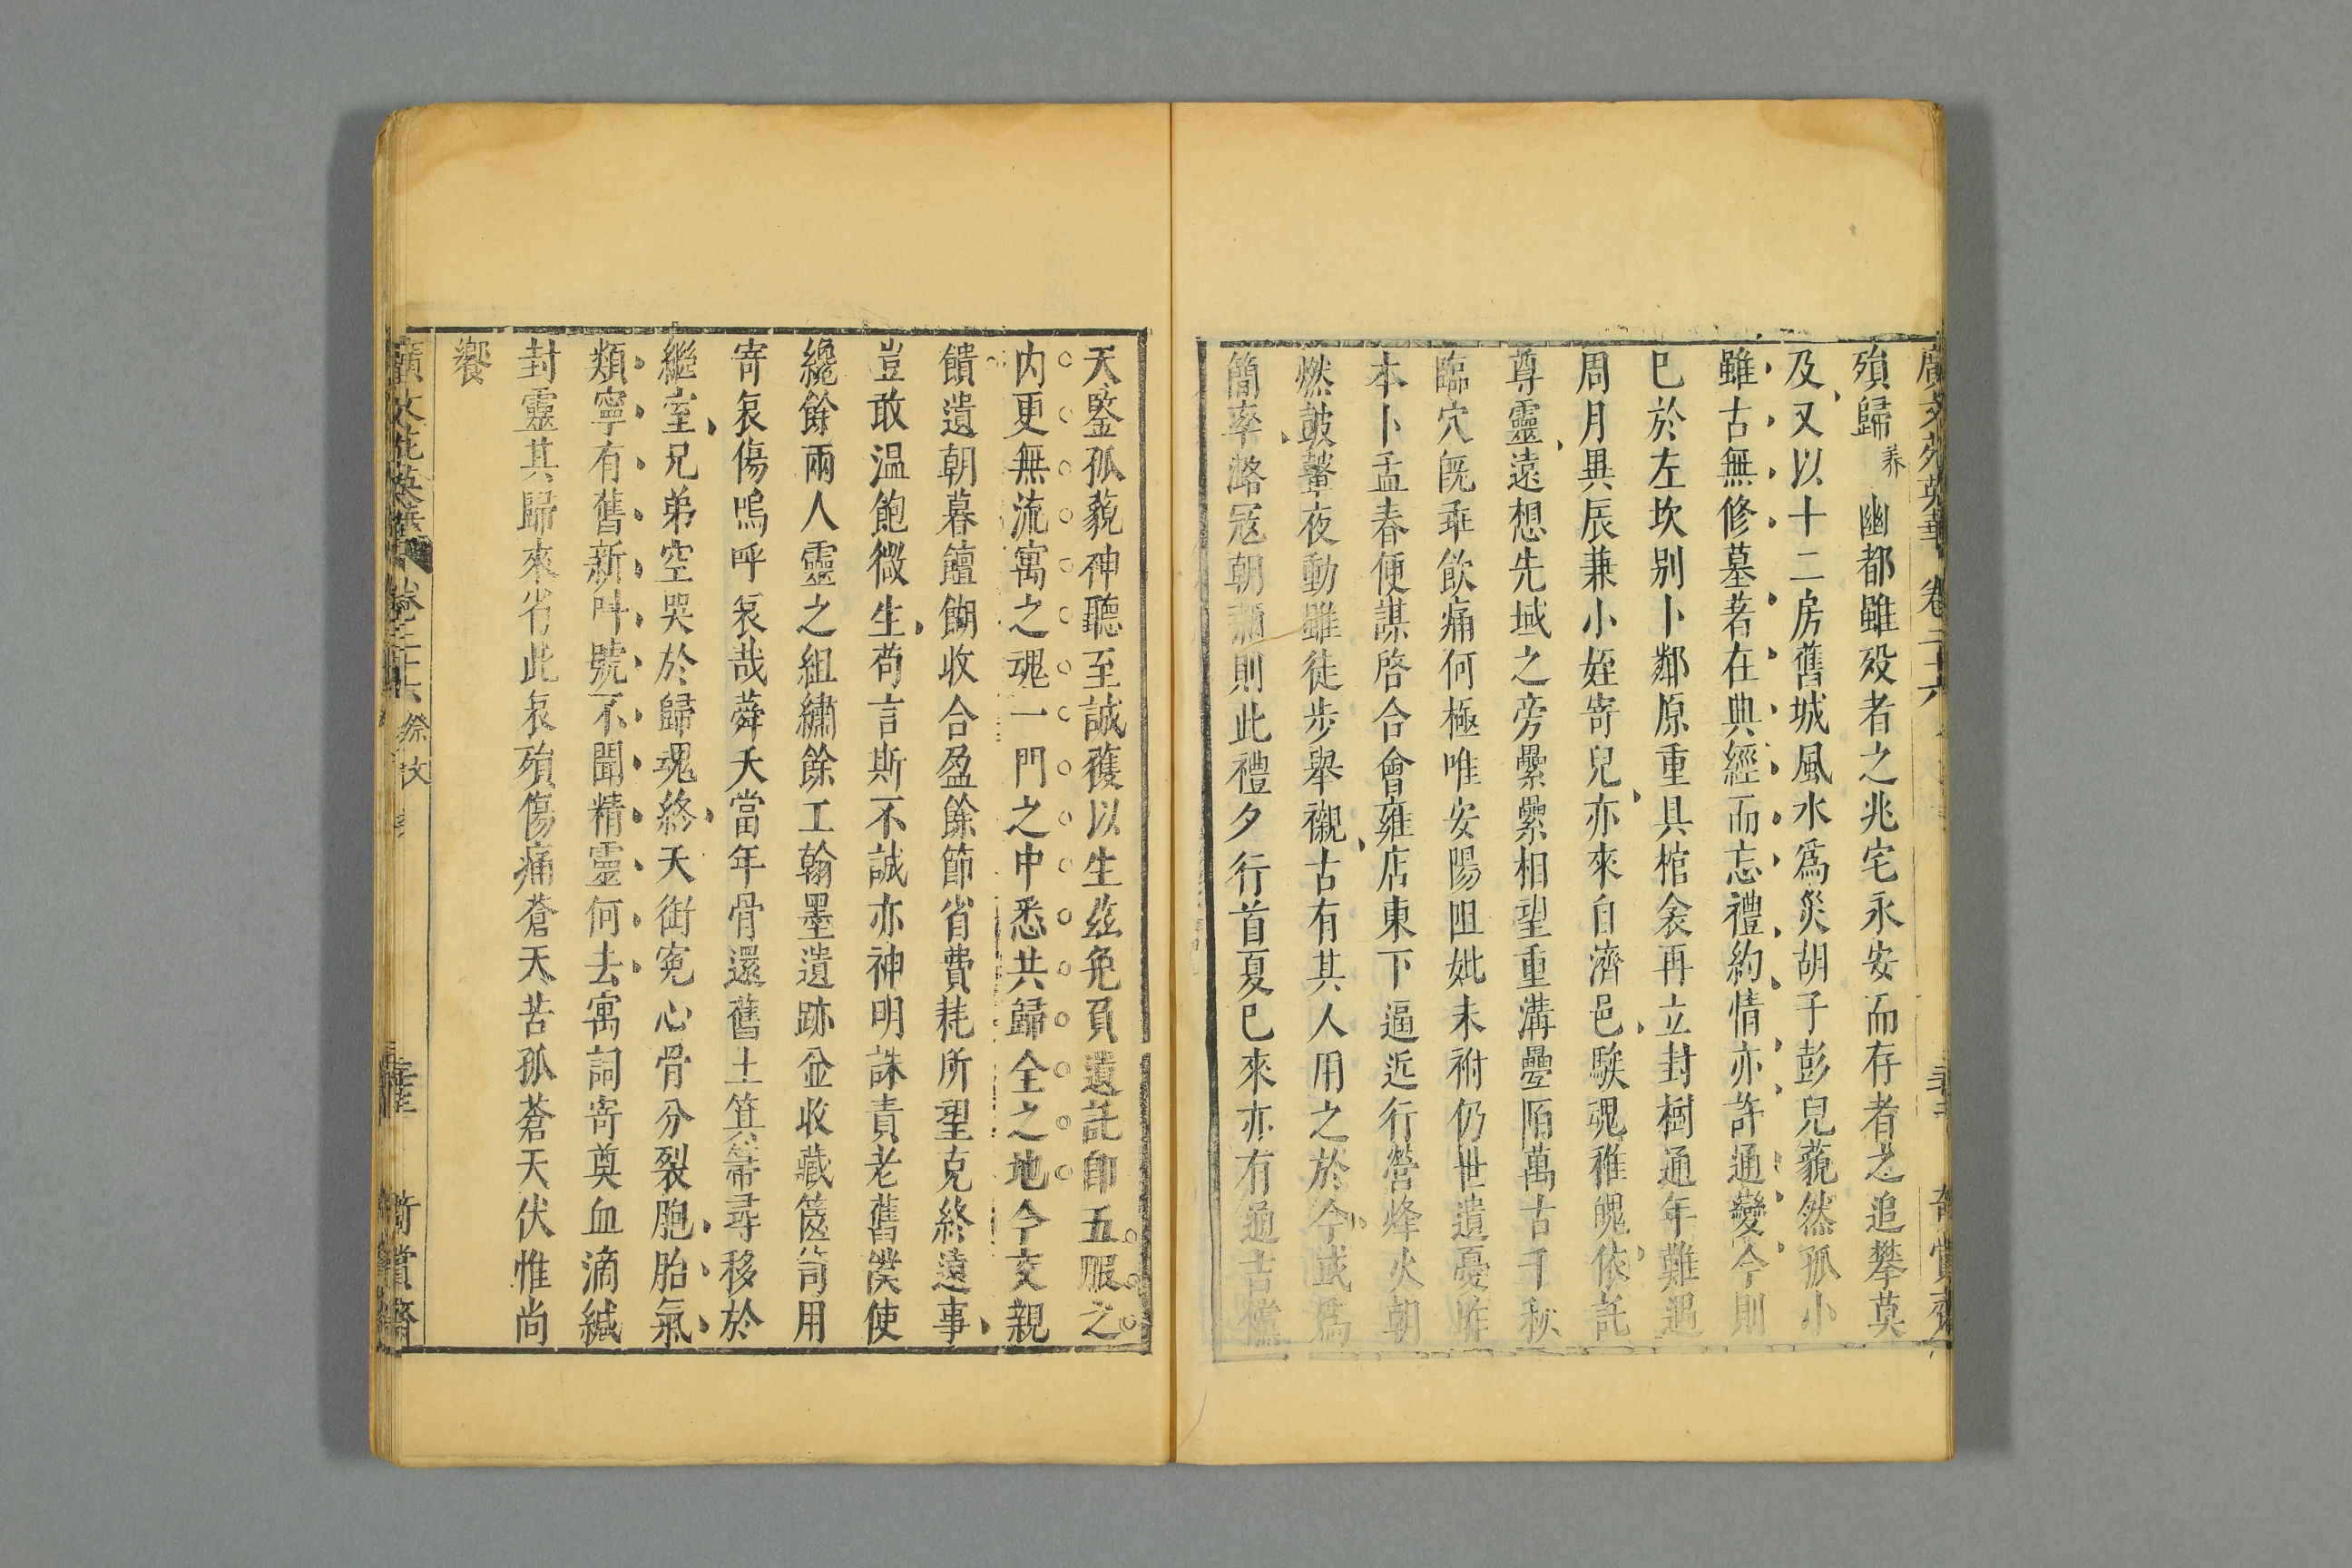 廣文苑英華 卷二十六
殞歸養 幽都雖殁者之兆宅永安而存者之追攀莫
及又以十二房舊城風水爲災胡子彭兒藐然孤小
雖古無修墓著在典經而忘禮約情亦許通變今則
已於左坎别卜鄰原重具棺衾再立封樹通年難遇
周月異辰兼小姪寄兒亦來自濟邑騃魂稚魄依託
尊靈遠想先域之旁纍纍相望重溝疊陌萬古千秋
臨穴既乖飲痛何極唯安陽阻妣未祔仍世遺憂昨
本卜孟春便謀啓合會雍店東下逼近行營烽火朝
燃鼓鼙夜動雖徒步舉櫬古有其人用之於今或爲
簡率潞寇朝彌則此禮夕行首夏已來亦有通吉
天鑒孤藐神聽至誠獲以生茲免負遺託卽五服之
内更無流寓之魂一門之中悉共歸全之地今交親
饋遺朝暮饘餬收合盈餘節省費耗所望克終遠事
豈敢温飽微生苟言斯不誠亦神明誅責老舊僕使
纔餘兩人靈之組繡餘工翰墨遺跡並收藏篋笥用
寄哀傷嗚呼哀哉蕣夭當年骨還舊土箕箒尋移於
繼室兄弟空哭於歸魂終天銜冤心骨分裂胞胎氣
類寧有舊新叫號不聞精靈何去寓詞寄奠血滴緘
封靈其歸來省此哀殞傷痛蒼天苦孤蒼天伏惟尚
饗
廣文苑英華 卷二十六 祭文 奇賞齋